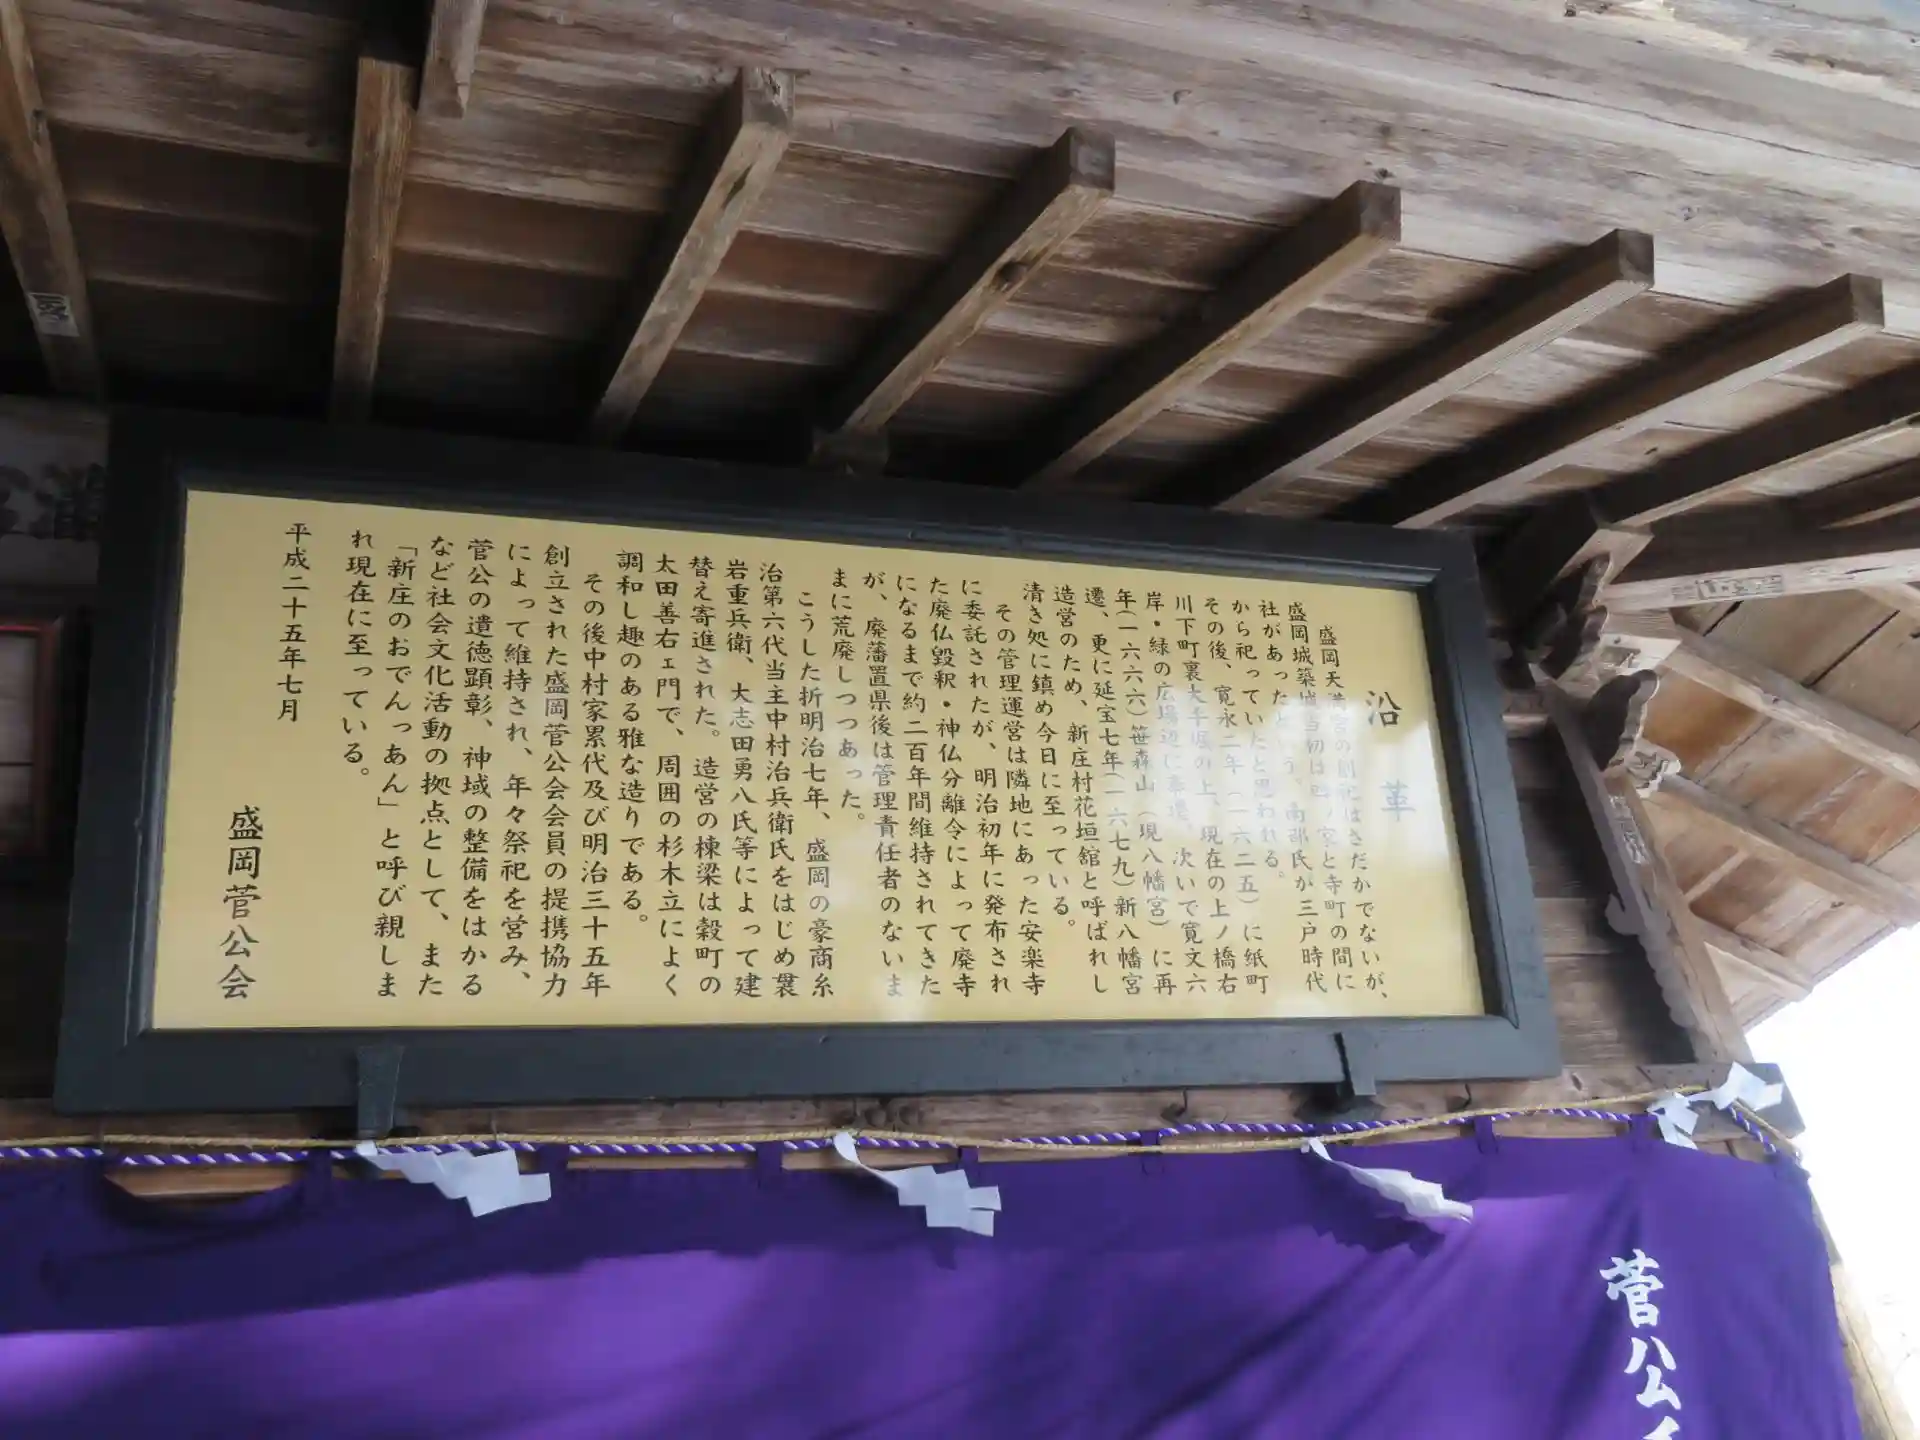 沿革
盛岡天満宮の創祀はさだかでないが、
盛岡城築城当初は四ノ家と寺町の間に
社があったという。南部氏が三戸時代
から祀っていたと思われる。
その後、寛永二年(一六二五)に紙町
川下町裏大手堀の上、現在の上ノ橋右
岸・緑の広場辺に奉遷、次いで寛文六
年(一六六六)笹森山(現八幡宮)に再
遷、更に延宝七年(一六七九)新八幡宮
造営のため、新庄村花垣舘と呼ばれし
清き処に鎮め今日に至っている。
その管理運営は隣地にあった安楽寺
に委託されたが、明治初年に発布され
た廃仏毀釈・神仏分離令によって廃寺
になるまで約二百年間維持されてきた
が、廃藩置県後は管理責任者のないま
まに荒廃しつつあった。
こうした折明治七年、盛岡の豪商糸
治第六代当主中村治兵衛氏をはじめ襲
岩重兵衛、大志田勇八氏等によって建
替え寄進された。造営の棟梁は穀町の
太田善右ェ門で、周囲の杉木立によく
調和し趣のある雅な造りである。
その後中村家累代及び明治三十五年
創立された盛岡菅公会会員の提携協力
によって維持され、年々祭祀を営み、
菅公の遺徳顕彰、神域の整備をはかる
など社会文化活動の拠点として、また
「新庄のおでんっあん」と呼び親しま
れ現在に至っている。
平成二十五年七月
盛岡菅公会
菅公